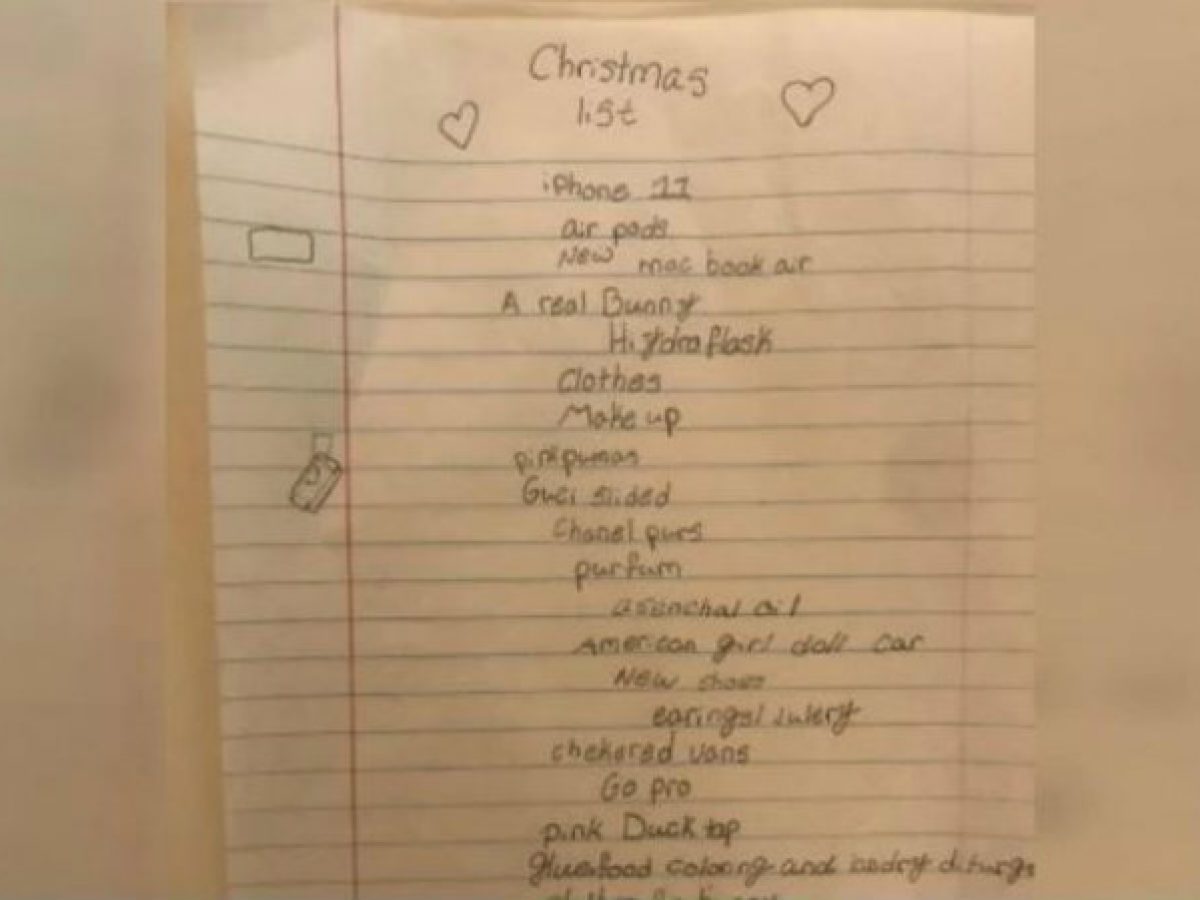 Christmas
list
iPhone 11
air pods
New mac book air
A real Bunny
Hydro flask
Clothes
Make up
pink pumas
Guci slided
Chanel purs
purfum
asenchal oil
American girl doll car
New shoes
earings/
chekered vans
Go pro
pink Duck tap
glue food coloring and